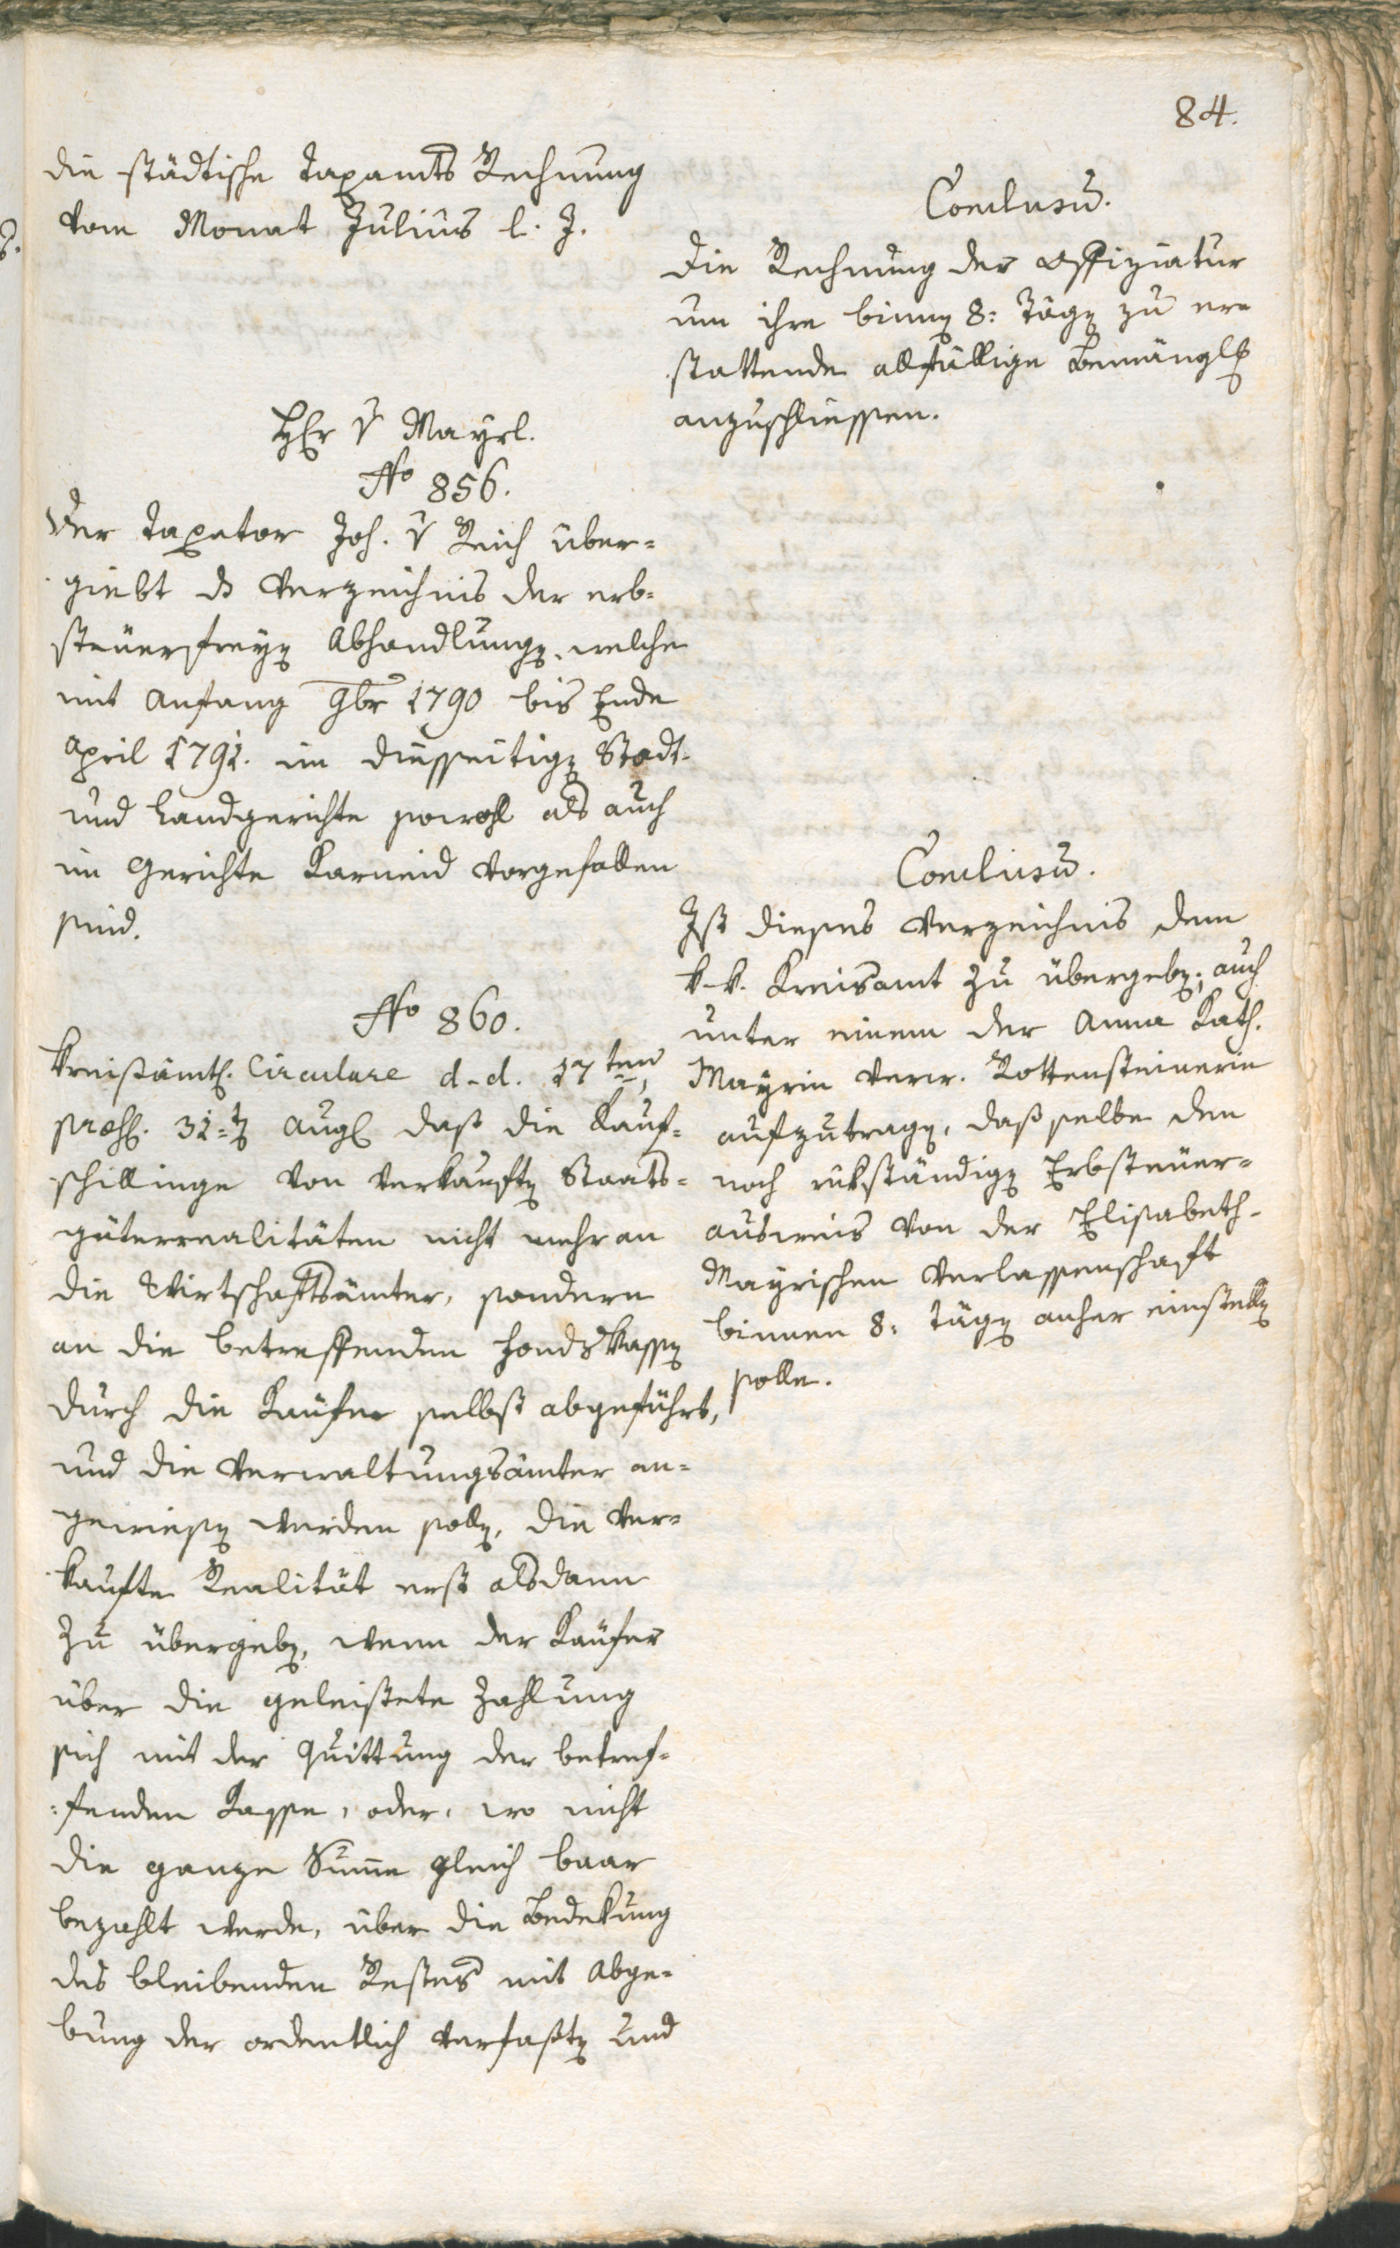 84.
die städtische Taxamts Rechnung
vom Monat Julius l. J.
Conclusu̅.
Die Rechnung der Offiziatur
um ihre binnen 8: Tägen zu er=
stattende allfällige Bemänglen
anzuschliessen.
HEr v Mayrl.
No 856.
Der Taxator Joh. v Reich über=
giebt ds Verzeichnis der erb=
steuerfreyen Abhandlungen, welche
mit Anfang 9br 1790 bis Ende
April 1791. im diesseitigen Stadt-
und Landgerichte sowohl als auch
im Gerichte Karneid vorgefallen
sind.
Conclusu̅.
Ist dieses Verzeichnis dem
k. k. Kreisamt zu übergeben; auch
unter einem der Anna Kath.
Mayrin verw. Rottensteinerin
aufzutragen, daß selbe den
noch rükständigen Erbsteuer=
ausweis von der Elisabeth-
Mayrischen Verlassenschaft
binnen 8: Tägen anher einstellen
solle.
No 860.
Kreisämtl. Circulare d. d. 17ten,
praes. 31=ten Aug. daß die Kauf=
schillinge von verkauften Staats=
güterrealitäten nicht mehr an
die Wirtschaftsämter, sondern
an die betreffenden Fondskassen
durch die Käufer selbst abgeführt,
und die Verwaltungsämter an=
gewiesen werden sollen, die ver=
kaufte Realität erst alsdann
zu übergeben, wenn der Käufer
über die geleistete Zahlung
sich mit der Quittung der betref=
=fenden Kasse, oder, wo nicht
die ganze Sum̅e gleich baar
bezahlt werde, über die Bedekung
des bleibenden Restes mit Abge=
bung der ordentlich verfaßten und